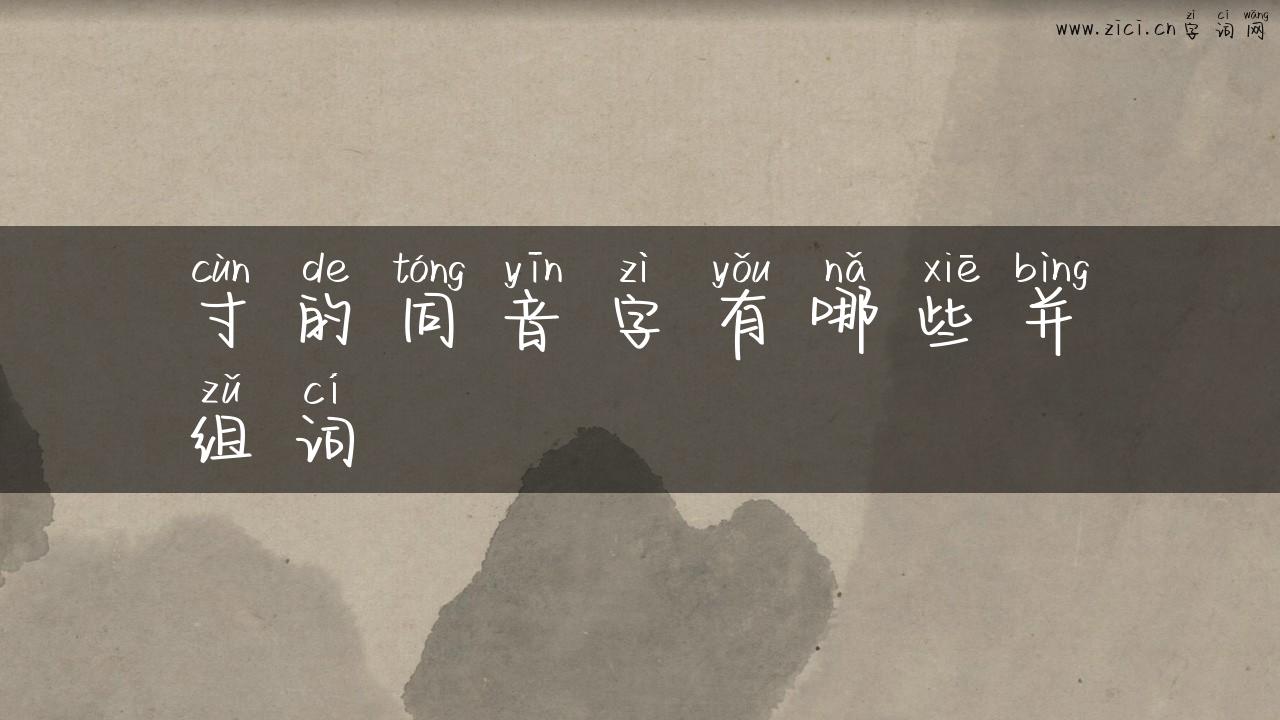 zì cí wǎng
www.zici.cn字词网
cùn de tóng yīn zì yǒu nǎ xiē bìng
寸的同音字有哪些并
zǔ cí
组词